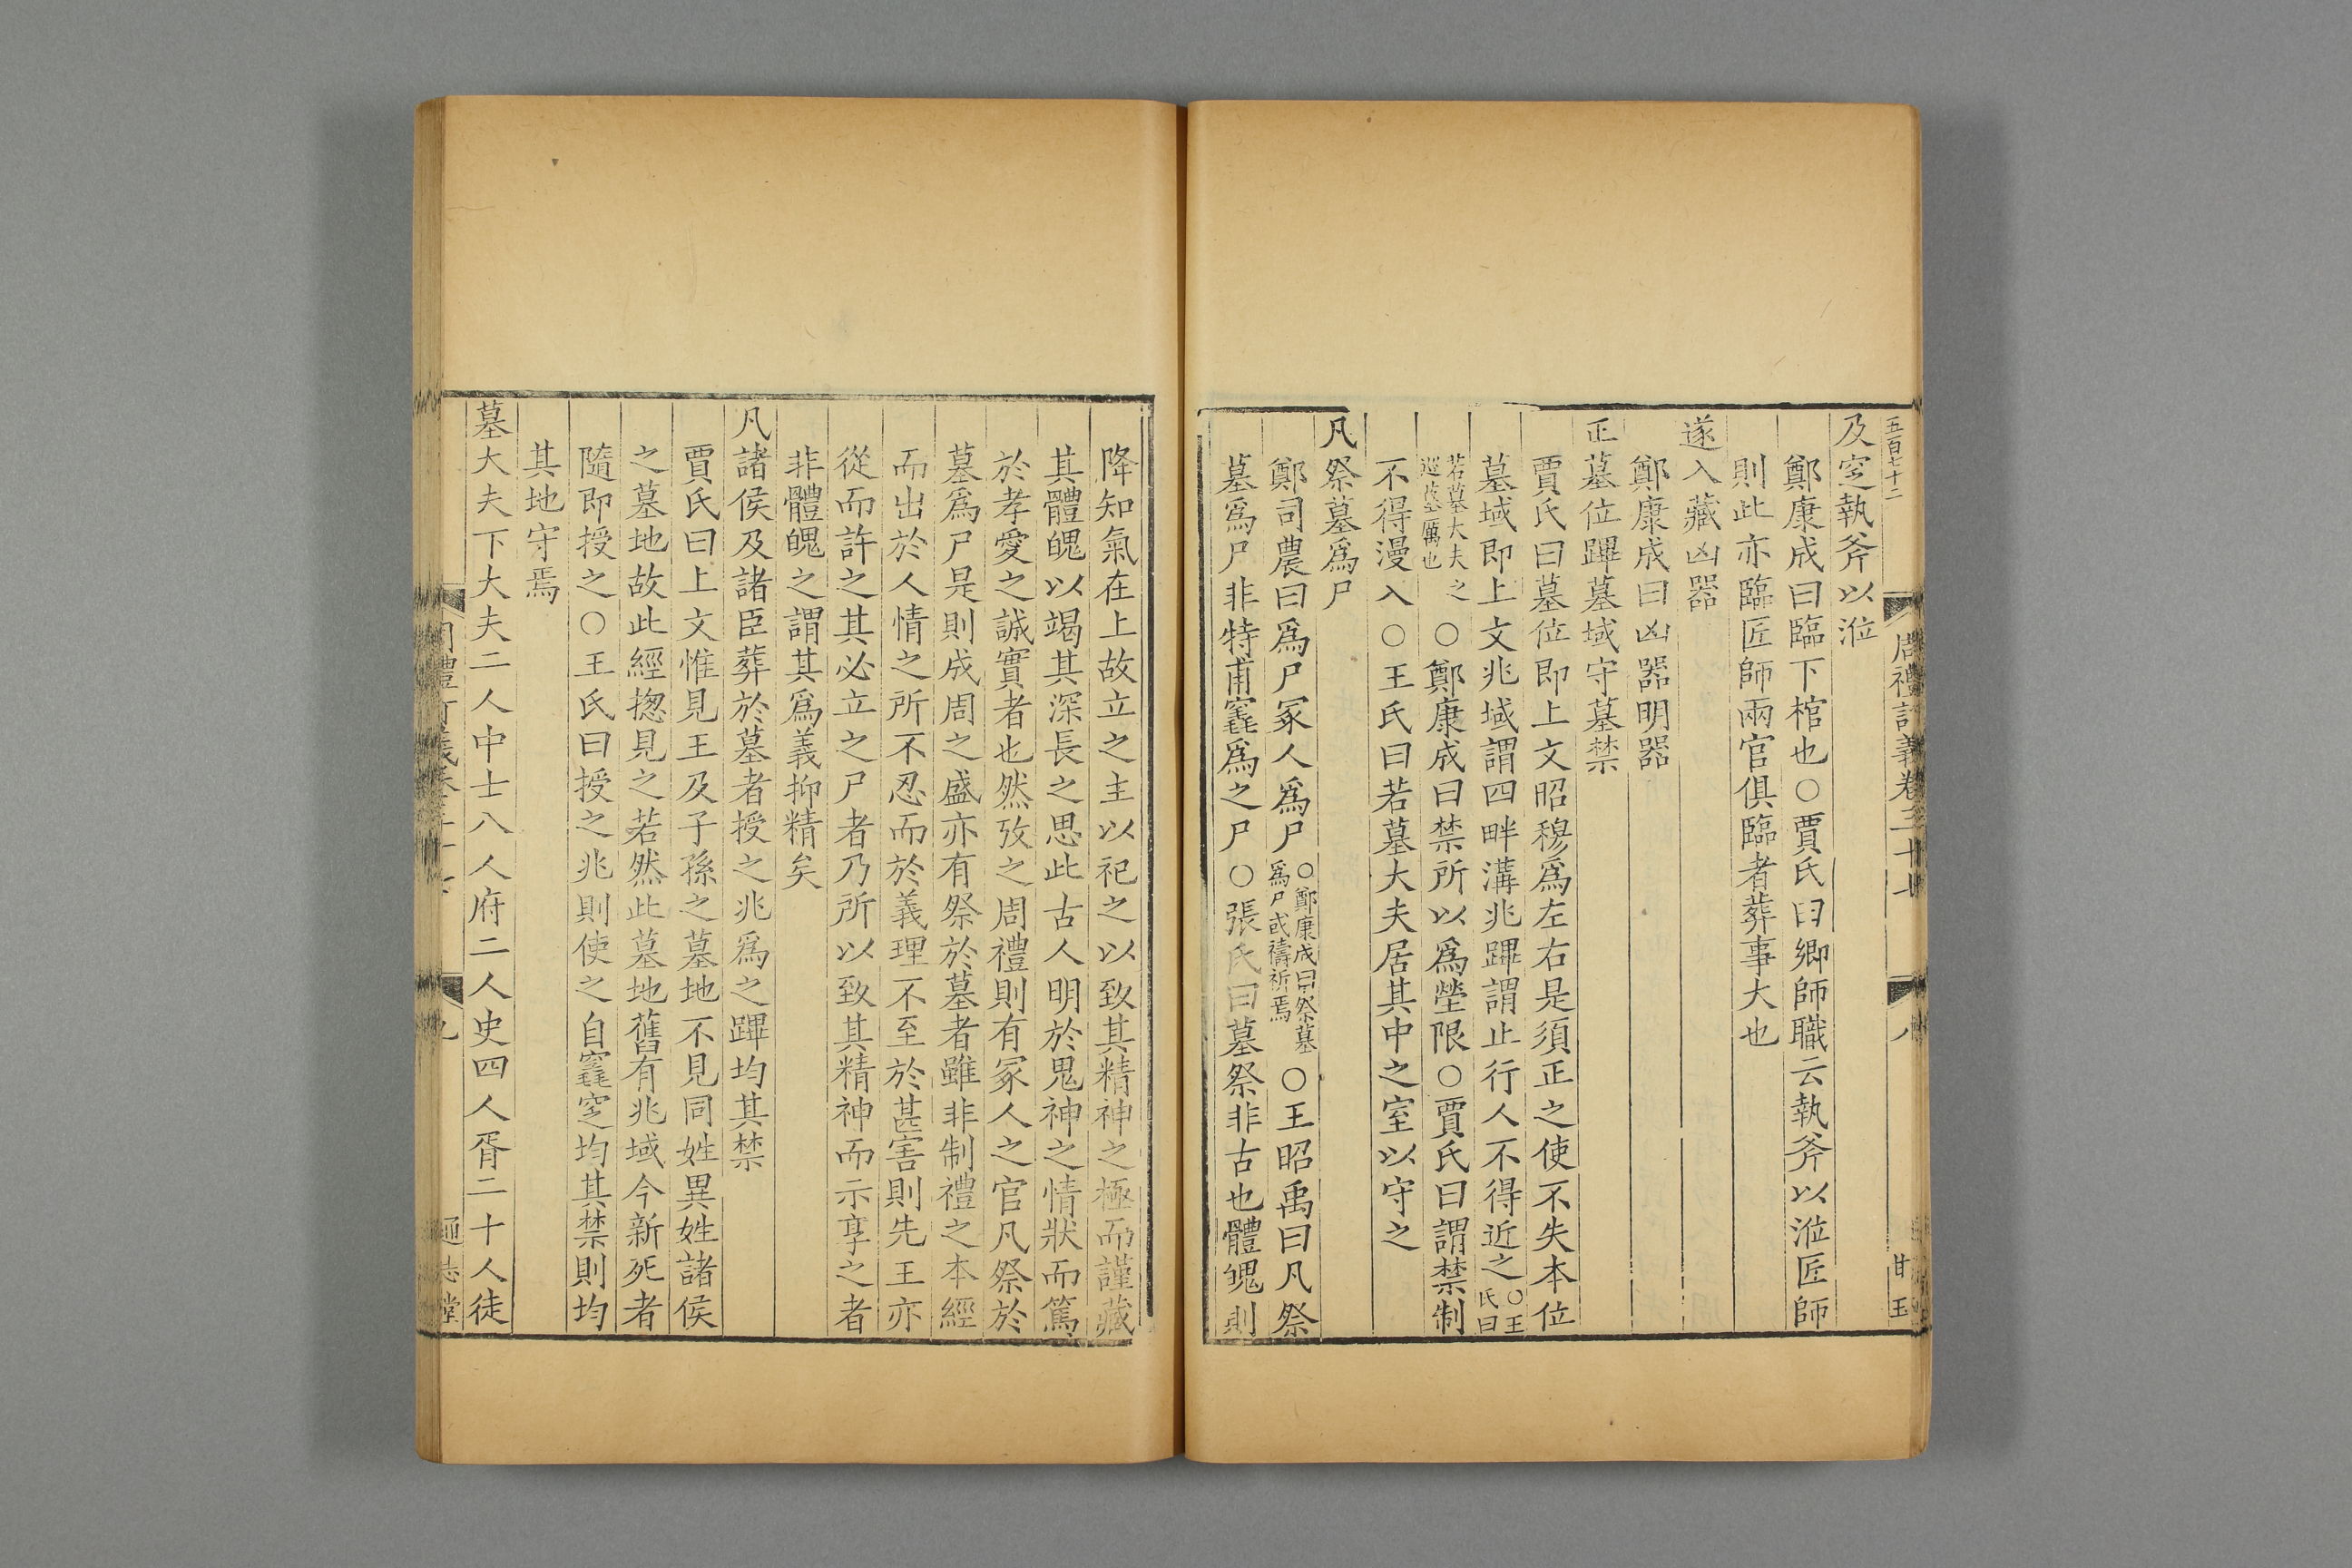 五百七十二
周禮訂義卷三十七
八
甘玉
及窆執斧以涖
鄭康成曰臨下棺也○賈氏曰鄉師職云執斧以涖匠師
則此亦臨匠師兩官俱臨者葬事大也
遂入藏凶器
鄭康成曰凶器明器
正墓位蹕墓域守墓禁
賈氏曰墓位即上文昭穆為左右是須正之使不失本位
墓域即上文兆域謂四畔溝兆蹕謂止行人不得近之○王氏曰
若墓大夫之巡墓厲也○鄭康成曰禁所以為塋限○賈氏曰謂禁制
不得漫入○王氏曰若墓大夫居其中之室以守之
凡祭墓為尸
鄭司農曰為尸冢人為尸○鄭康成曰祭墓為尸或禱祈焉○王昭禹曰凡祭
墓為尸非特甫竁為之尸○張氏曰墓祭非古也體魄則
降知氣在上故立之主以祀之以致其精神之極而謹藏
其體魄以竭其深長之思此古人明於鬼神之情狀而篤
於孝愛之誠實者也然攷之周禮則有冢人之官凡祭於
墓為尸是則成周之盛亦有祭於墓者雖非制禮之本經
而出於人情之所不忍而於義理不至於甚害則先王亦
從而許之其必立之尸者乃所以致其精神而示享之者
非體魄之謂其為義抑精矣
凡諸侯及諸臣葬於墓者授之兆為之蹕均其禁
賈氏曰上文惟見王及子孫之墓地不見同姓異姓諸侯
之墓地故此經摠見之若然此墓地舊有兆域今新死者
隨即授之○王氏曰授之兆則使之自竁窆均其禁則均
其地守焉
墓大夫下大夫二人中士八人府二人史四人胥二十人徒
九
通志堂